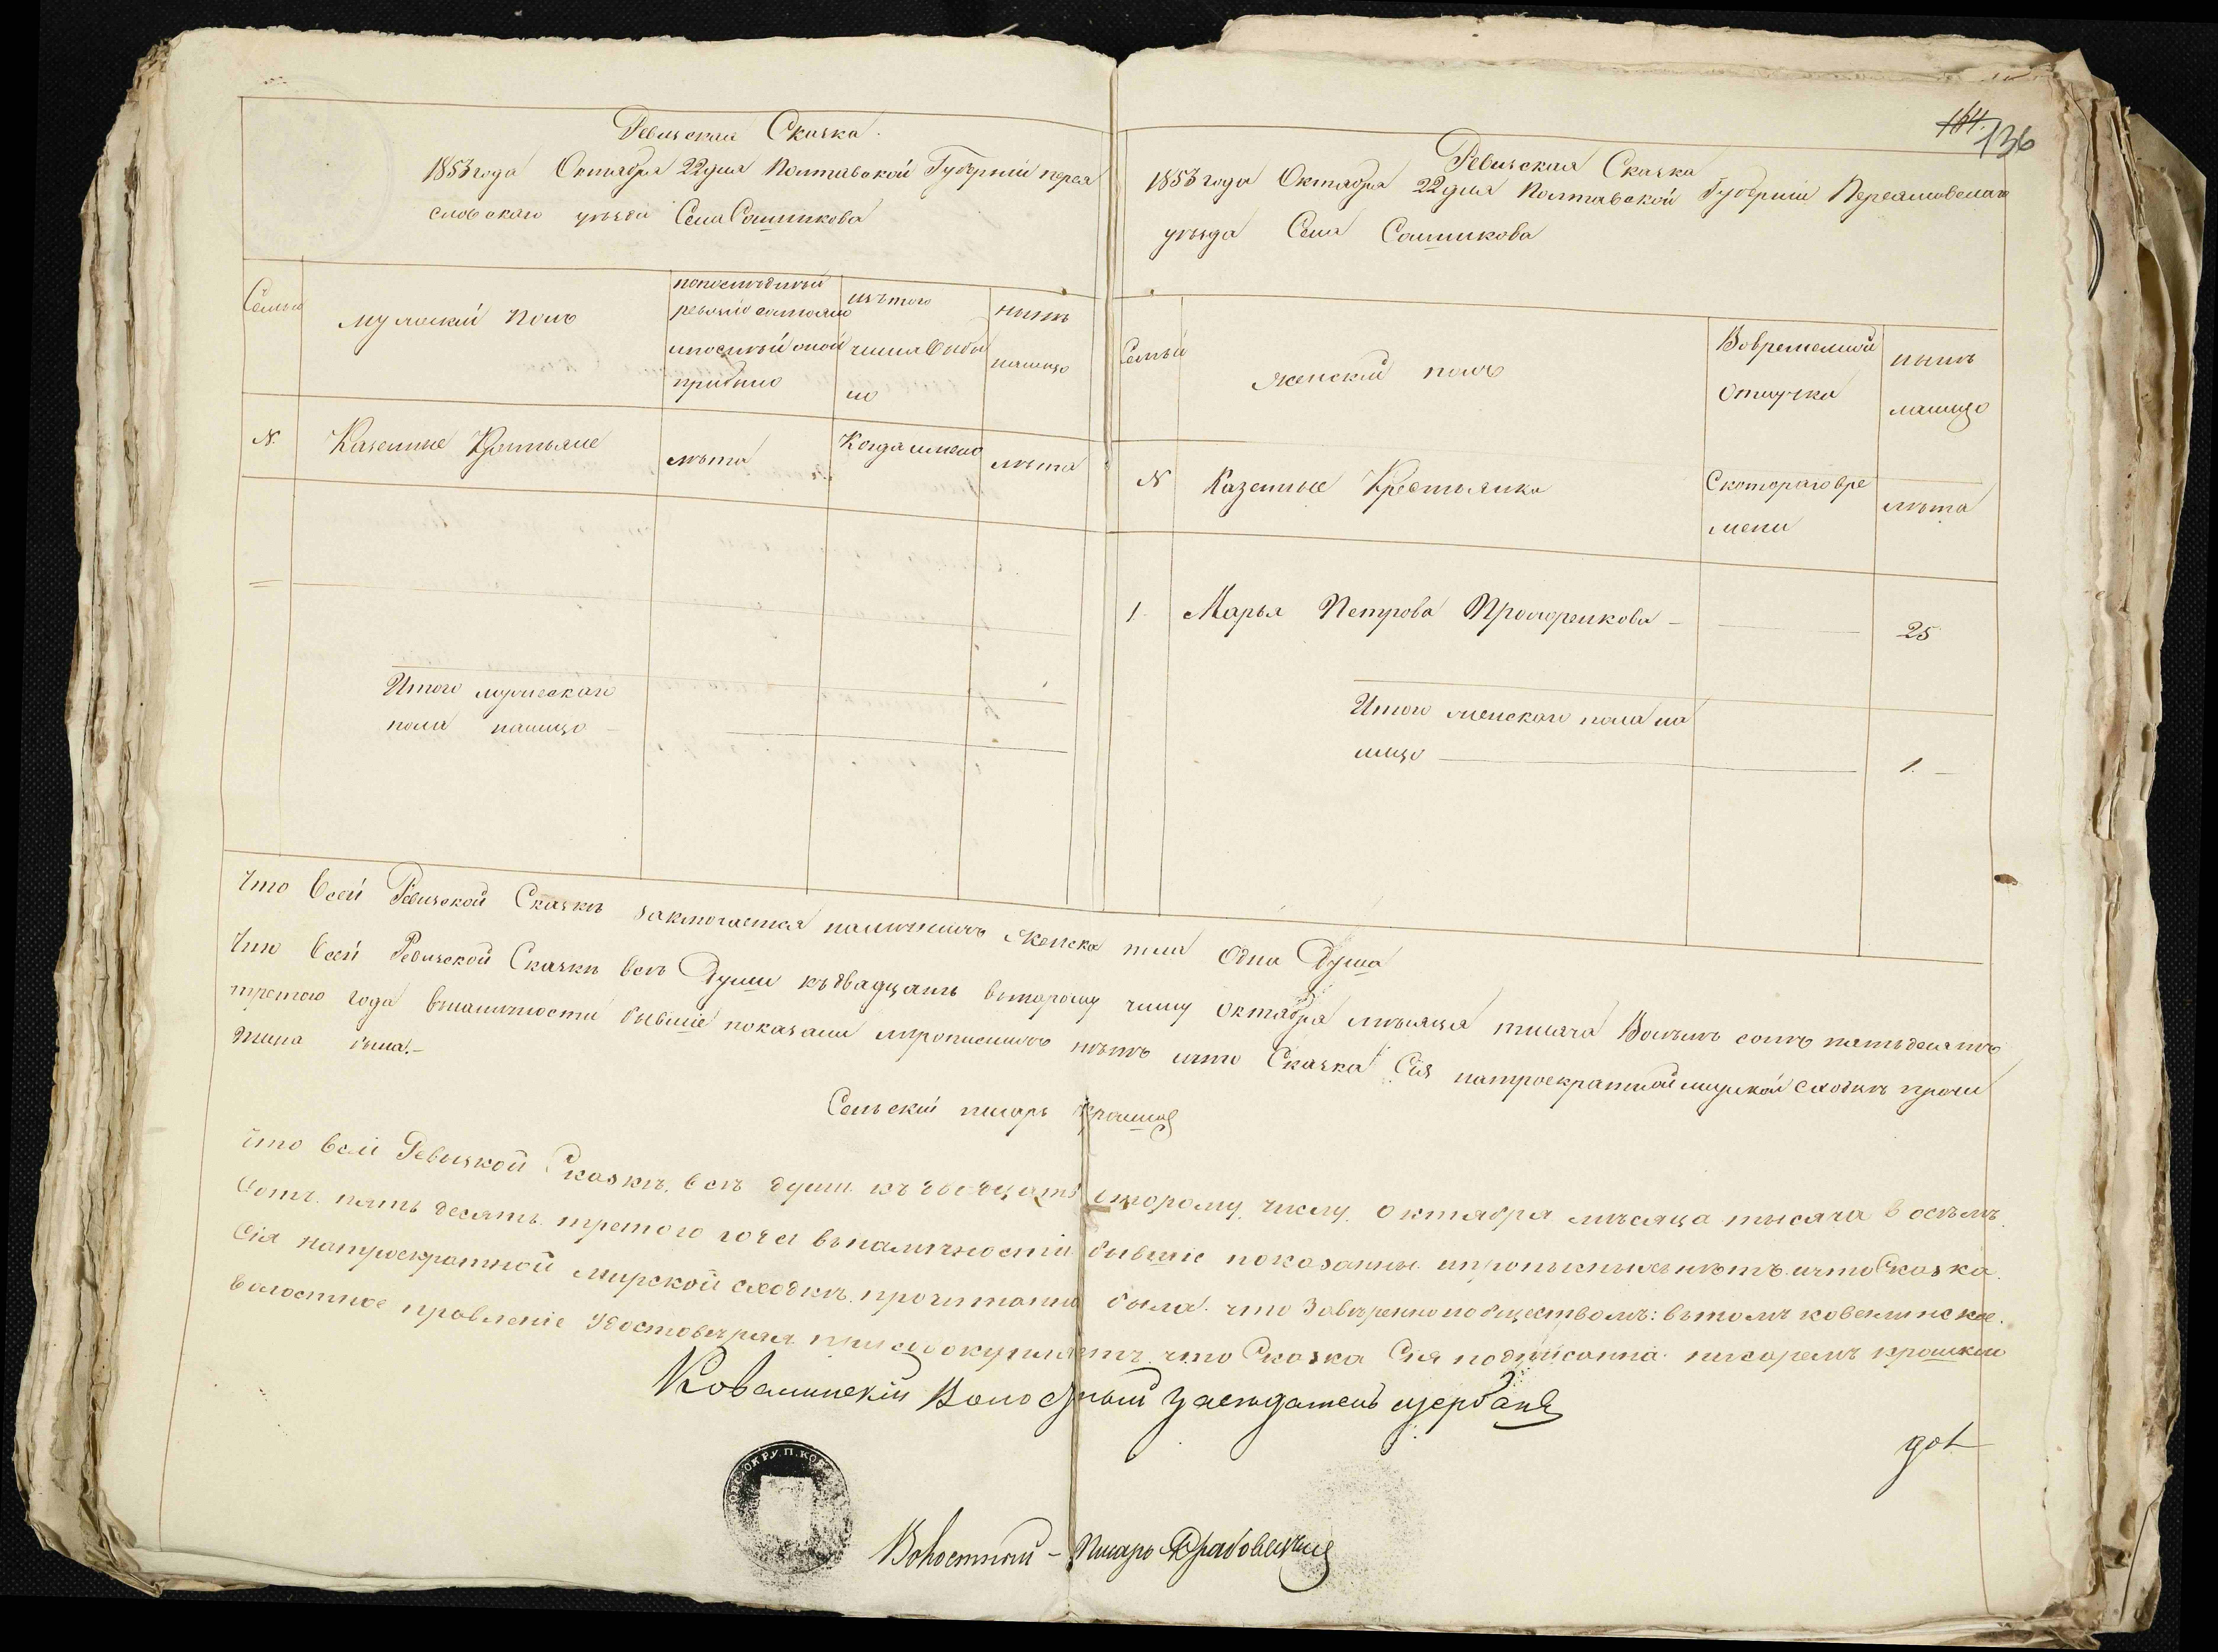 136
Ревизская Сказка
1853 года Октября 22 дня Полтавской Губернии перея
словскаго уезда Села Сошникова
Семьи
мужеский полъ
по последней
ревизіи состояло
и после оной
прибыло
изъ того
числа выбы
ло
ныне
налицо
N
Казенные Крестьяне
лета
Когда имено
лета
Итого мужескаго
пола налицо
Ревизская Сказка
1853 года Октября 22 дня Полтавской Губерніи Переяславскаго
уезда Села Сошникова
Семьи
женский полъ
Во временной
отлучке
ныне
налицо
N
Казенные Крестьянки
С котораго вре
мени
лета
1. Марья Петрова Прохоренкова 25
Итого женскаго пола на
лицо 1.
Что в сей Ревизской Сказкѣ заключается наличныхъ женска пола Одна Душа
Что в сей Ревизской Сказкѣ всѣ Души къ двадцать второму числу октября мѣсяца тысяча Восѣмъ сотъ пятьдесятъ
третего года вналичности бывшіе показаны ипрописныхъ нѣтъ ичто Сказка Сія натроекратной мирской сходкѣ прочи
тана была.
Сельскій писарь Крошка
Что всей Ревизкой Сказкѣ. всѣ души. къ двадцать второму. числу. октября мѣсяца тысяча восѣмъ.
сотъ. пять десять. третого года вьналичности бывшіе показанны. ипрописныхъ нѣтъ. ичто Сказка.
Сія натроекратной мирской сходкѣ. прочитанна была. что завѣренно обществомъ: вьтомъ ковалинское.
волостное правленіе Удостовѣряя присовокупляетъ. что Сказка Сія подписанна. писаремъ крошкою
Ковалинскій Волостный Засѣдатель щербакъ
Волостный - Писарь